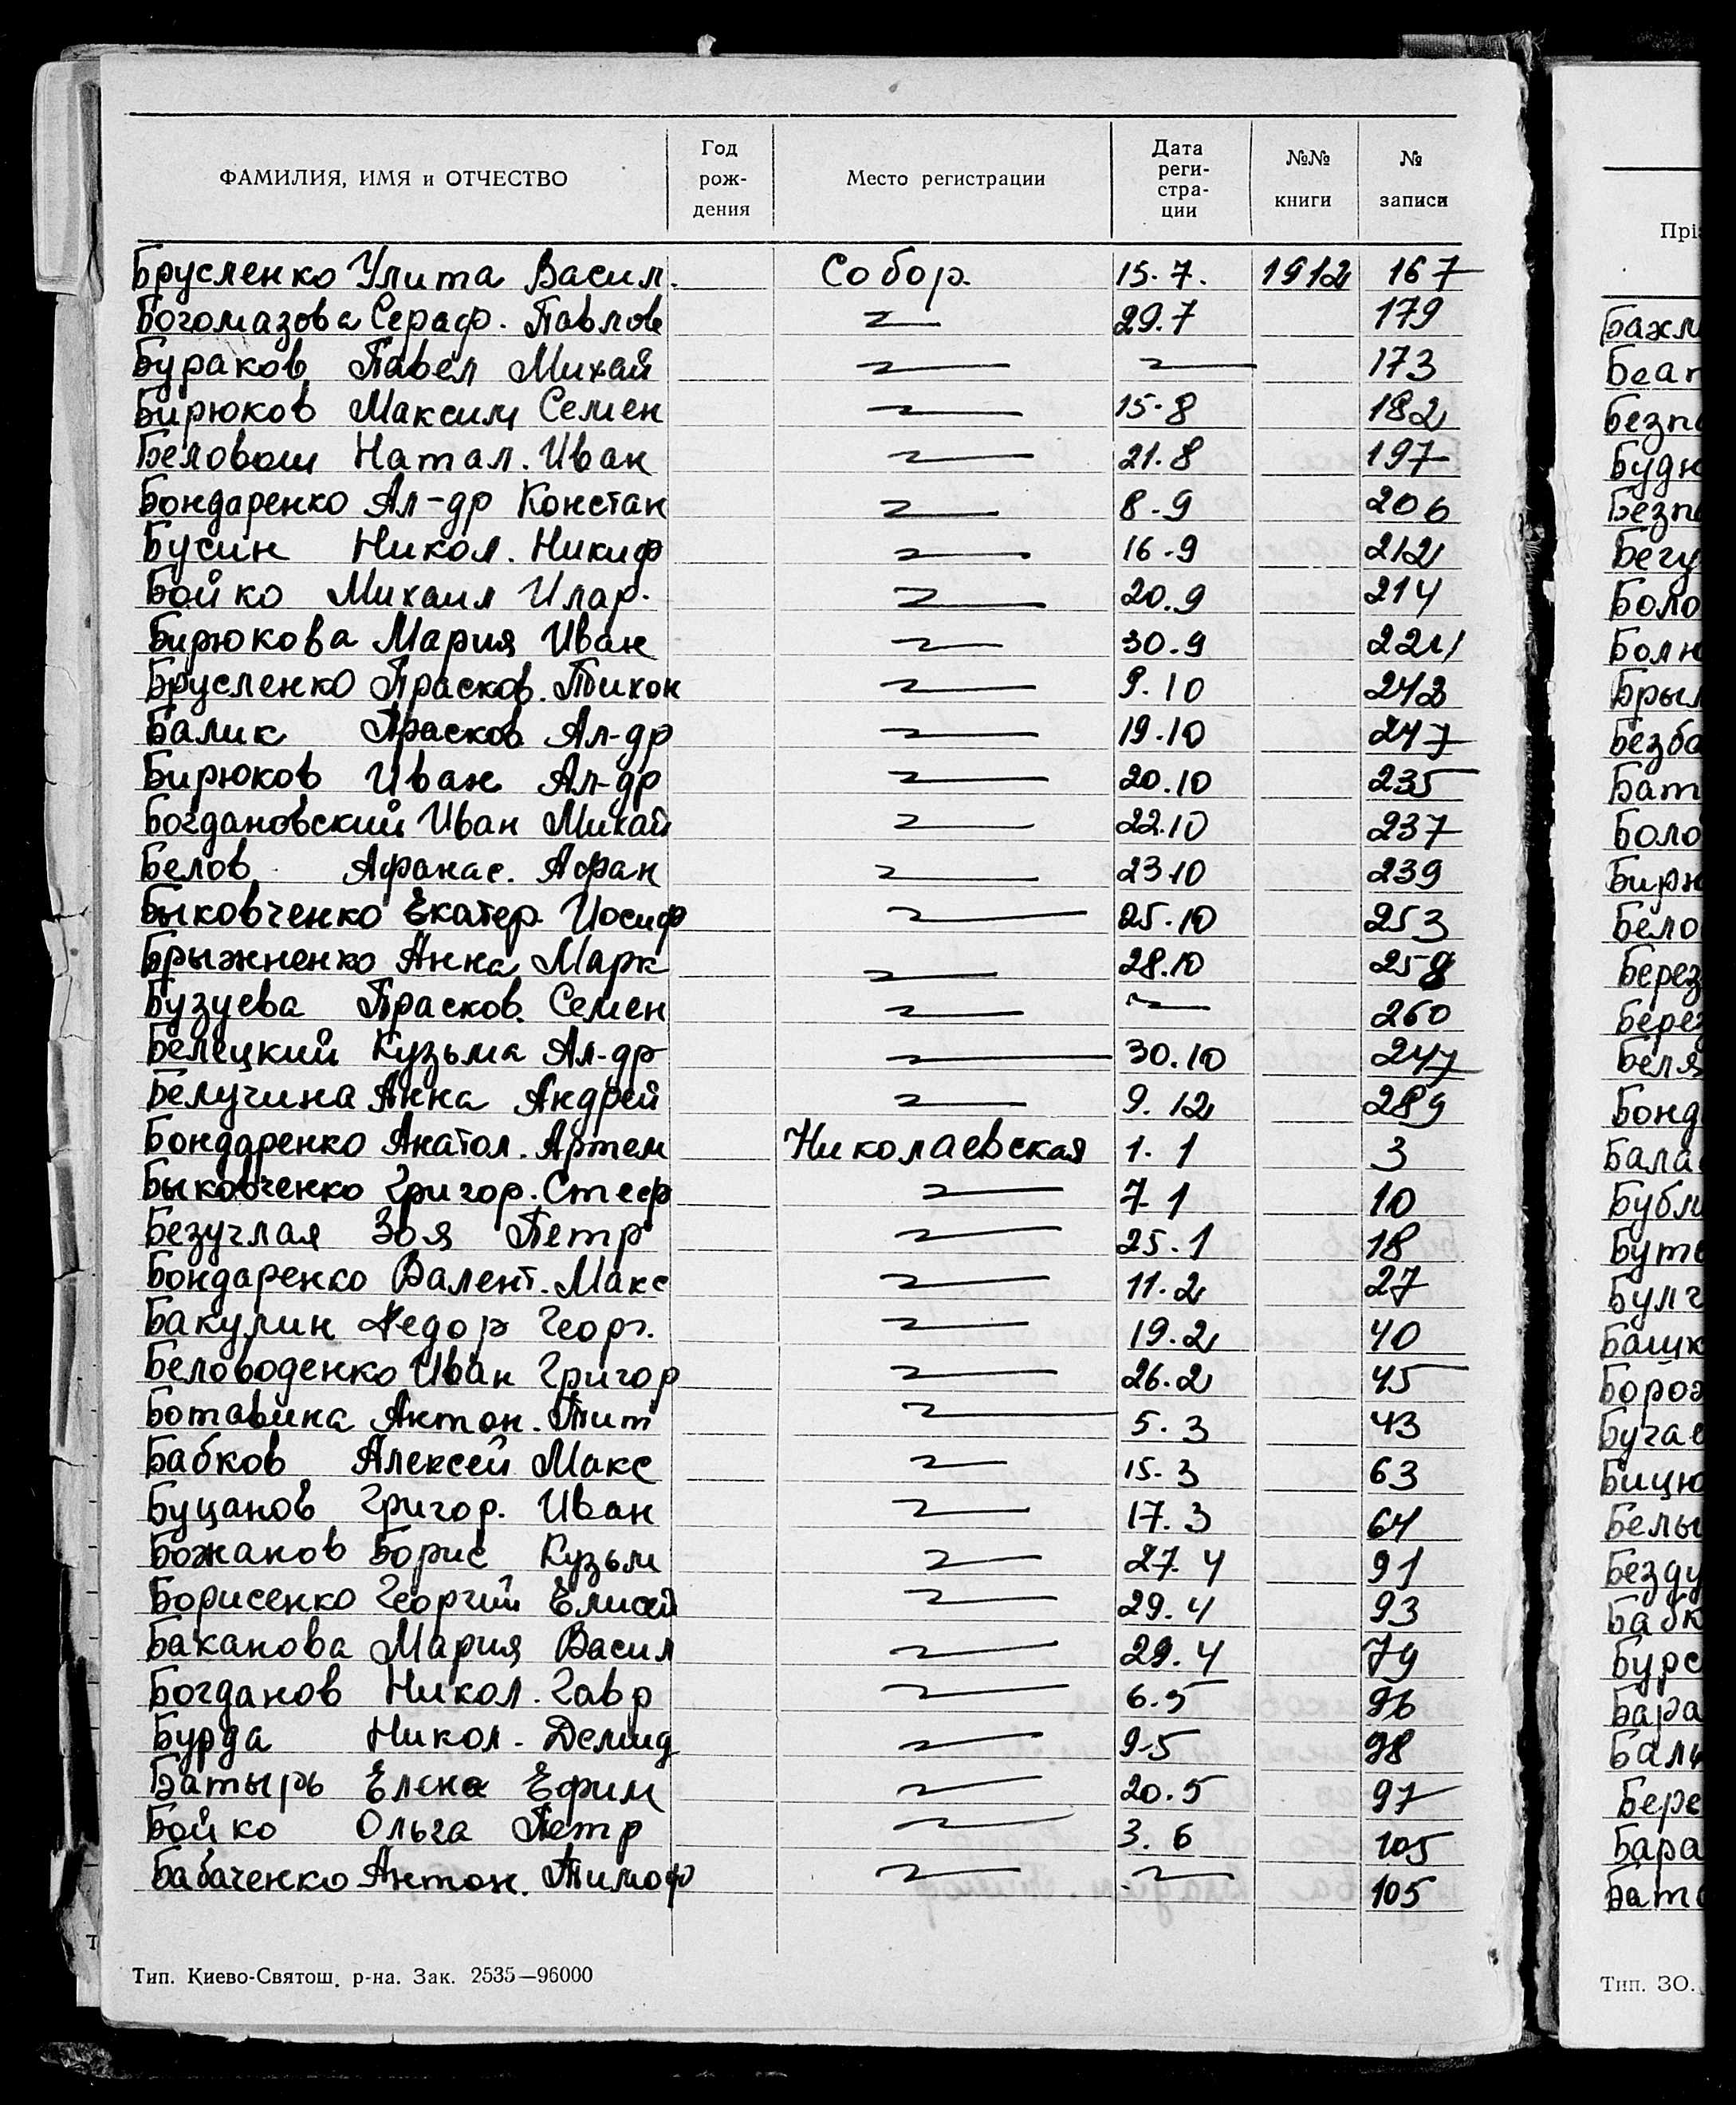 ФАМИЛИЯ, ИМЯ и ОТЧЕСТВО Год рож- дения Место регистрации Дата реги- стра- ции №№ книги № записи
Брусленко Улита Васил. Собор. 15.7. 1912 167
Богомазова Сераф. Павлов 29.7 179
Бураков Павел Михай 173
Бирюков Максим Семен 15.8 182
Беловош Натал. Иван 21.8 197
Бондаренко Ал-др Констан 8.9 206
Бусин Никол. Никиф 16.9 212
Бойко Михаил Илар. 20.9 214
Бирюкова Мария Иван 30.9
Брусленко Прасков. Тихон 9.10 242
Балик Прасков Ал-др 19.10 247
Бирюков Иван Ал-др 20.10 235
Богдановский Иван Михай 22.10 237
Белов Афанас. Афан 23.10 239
Быковченко Екатер. Иосиф 25.10 253
Брыжненко Анна Марк 28.10 258
Бузуева Прасков. Семен 260
Белецкий Кузьма Ал-др 30.10 247
Белучина Анна Андрей 9.12 289
Бондаренко Анатол. Артем Николаевская 1.1 3
Быковченко Григор. Стеф 7.1 10
Безуглая Зоя Петр 25.1 18
Бондаренко Валент. Макс 11.2 27
Бакулин Федор Георг. 19.2 40
Беловоденко Иван Григор 26.2 45
Ботавина Антон. Тит 5.3 43
Бабков Алексей Макс 15.3 63
Буцанов Григор. Иван 17.3 64
Божанов Борис Кузьм 27.4 91
Борисенко Георгий Елисей 29.4 93
Баканова Мария Васил 29.4 79
Богданов Никол. Гавр 6.5 96
Бурда Никол. Демид 9.5 98
Батырь Елена Ефим 20.5 97
Бойко Ольга Петр 3.6 105
Бабаченко Антон. Тимоф 105
Тип. Киево-Святош. р-на. Зак. 2535—96000
Прі
Бажм
Безп
Будн
Безп
Бегу
Боло
Болн
Безба
Бат
Боло
Бирю
Бело
Берез
Берез
Беля
Бонд
Бала
Бубл
Буте
Башк
Бороз
Бугае
Бицю
Белы
Безду
Бабк
Бурс
Бара
Баль
Бере
Бара
Бат
Тип. ЗО.